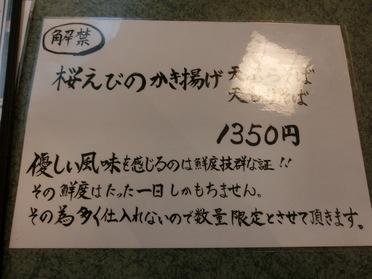 解禁
桜えびのかき揚げ 天ぷらそば
天せいろそば
1350円
優しい風味を感じるのは鮮度抜群な証!!
その鮮度はたった一日しかもちません。
その為多く仕入れないので数量限定とさせて頂きます。